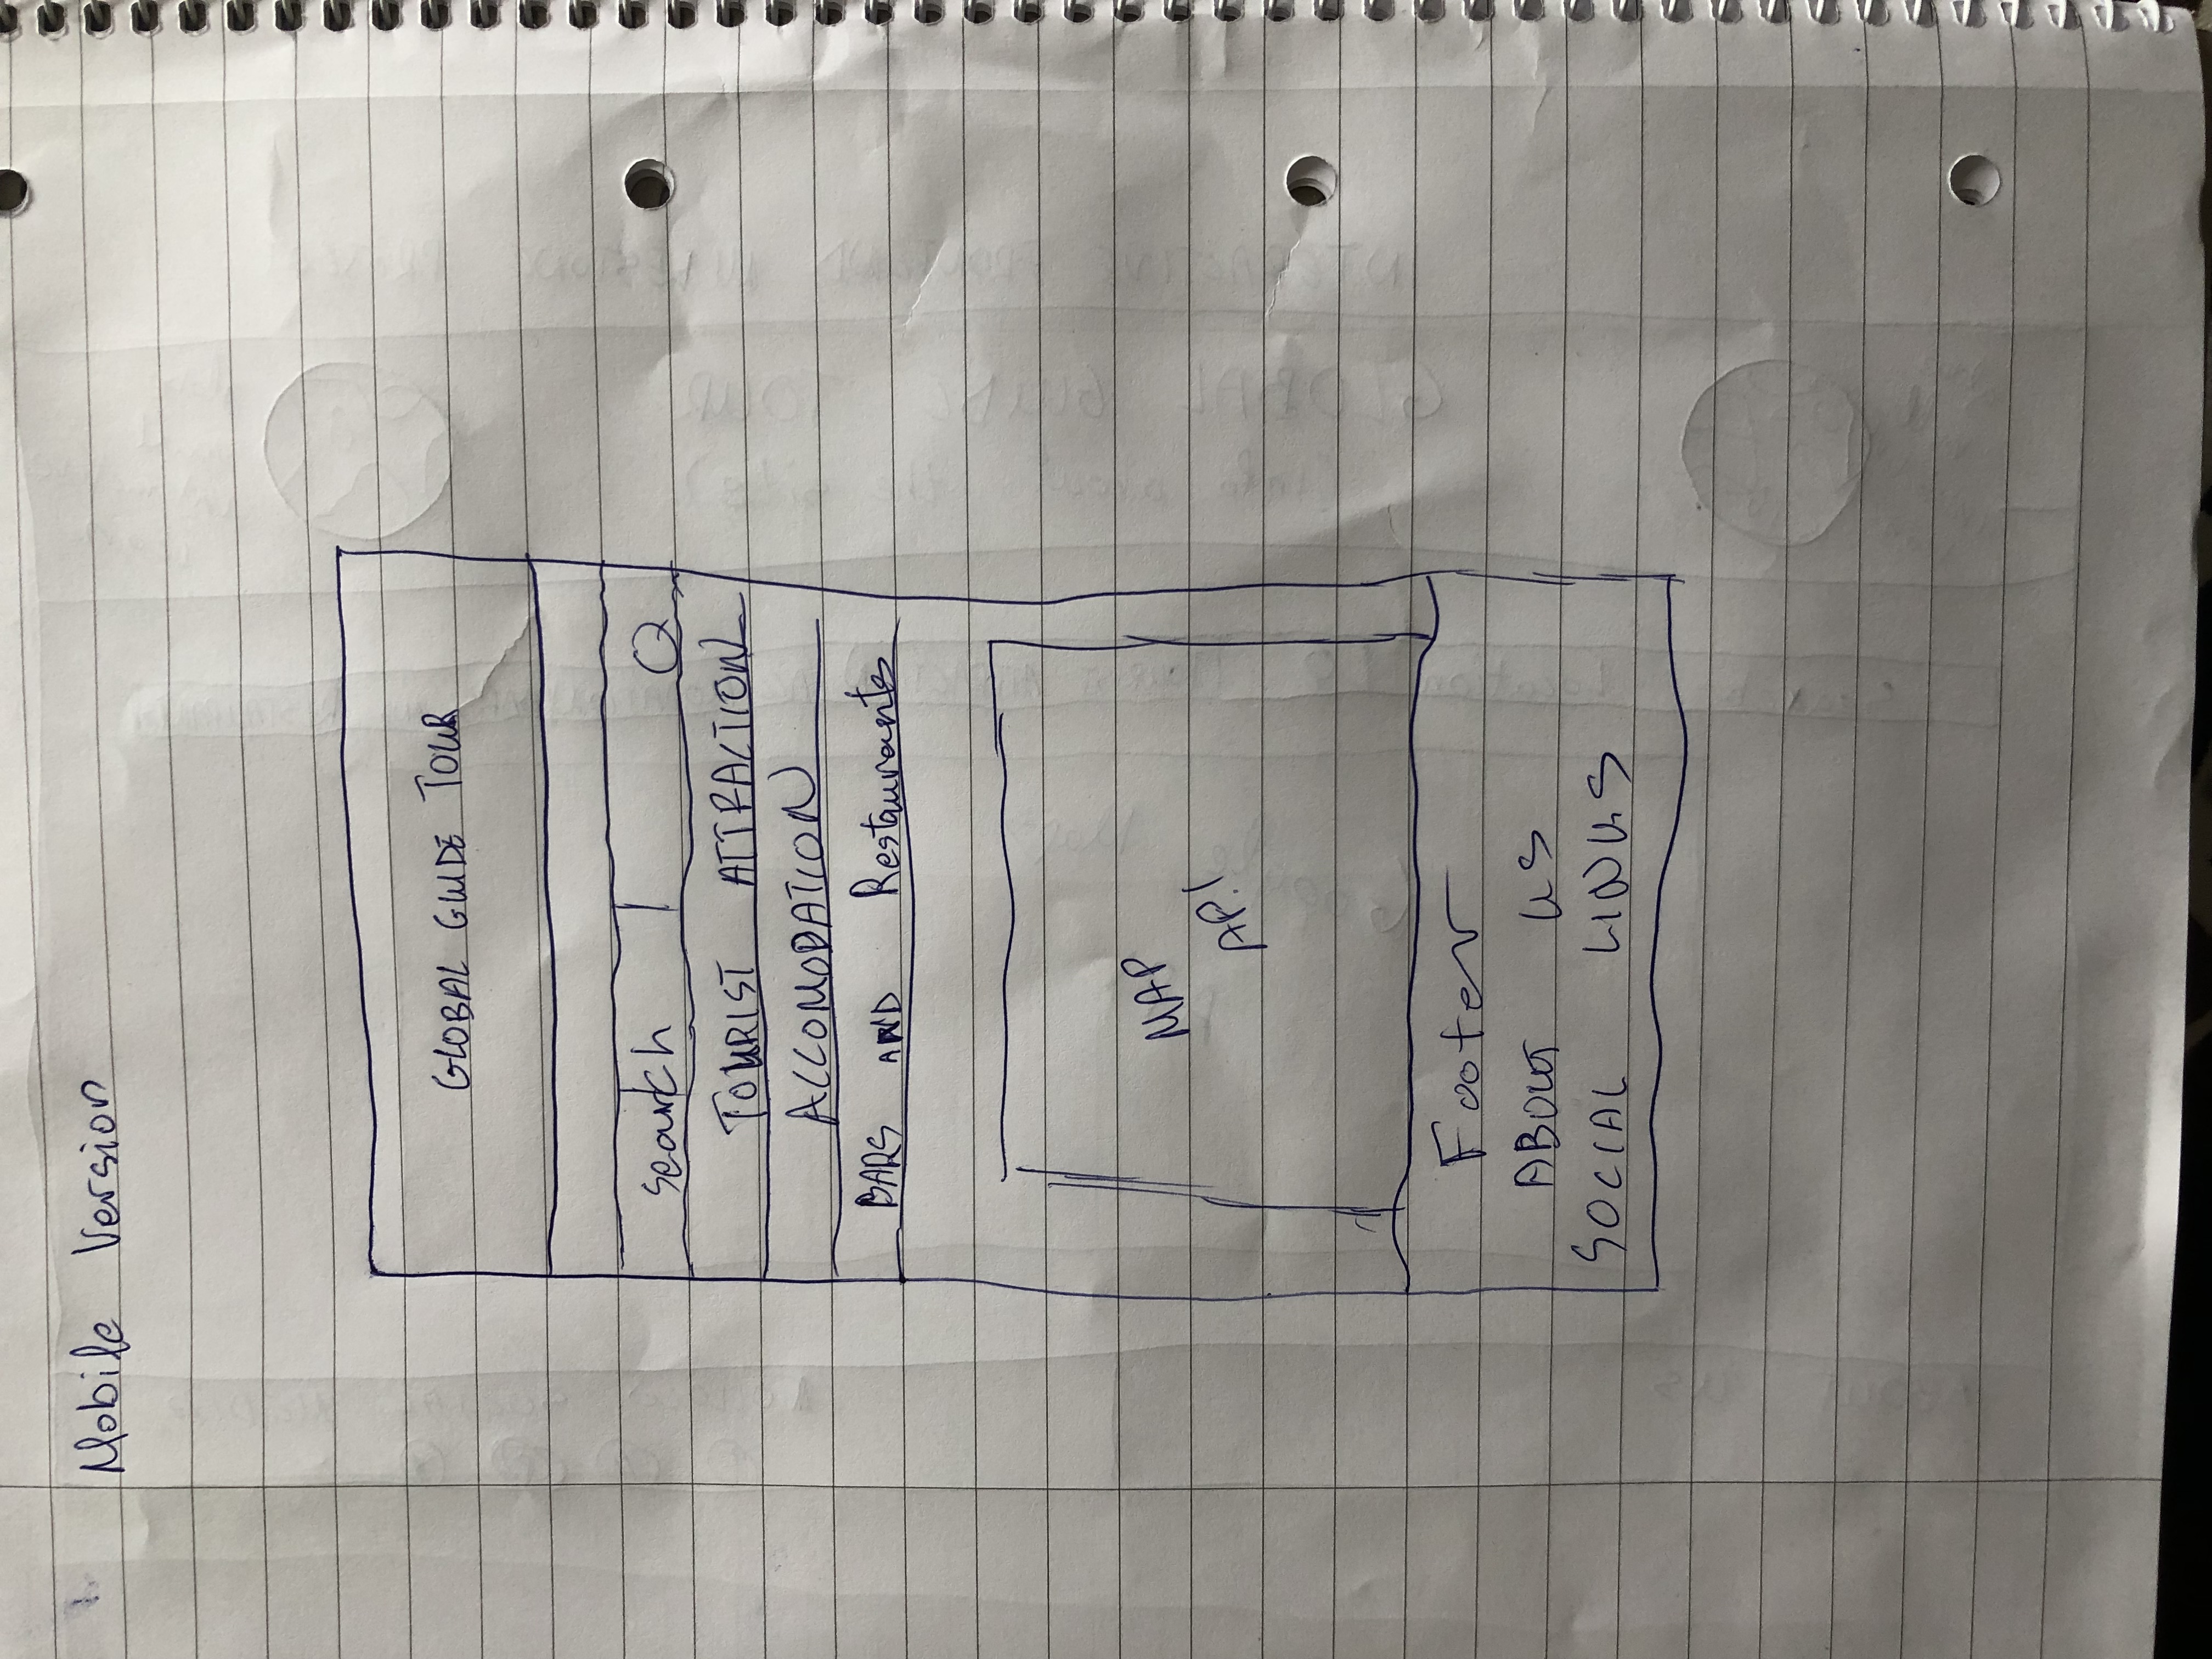 Mobile Version
GLOBAL GUIDE TOUR
Search
TOURIST ATTRACTION
ACCOMODATION
BARS AND Restaurants
MAP
API
Footer
ABOUT US
SOCIAL LINKS